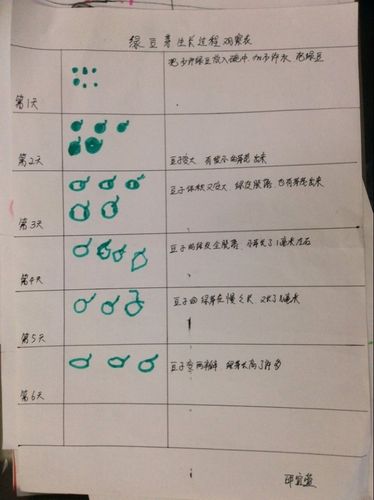 绿豆芽生长过程观察表
第1天
把少许绿豆放入碗中, 加少许水, 把绿豆
第2天
豆子变大, 有些小的芽冒出来
第3天
豆子体积又变大, 绿皮脱落, 也有芽冒出来
第4天
豆子的绿皮全脱落, 小芽长了1毫米左右
第5天
豆子的绿芽在慢慢长, 又长了1毫米
第6天
豆子变两瓣, 绿芽长高了许多